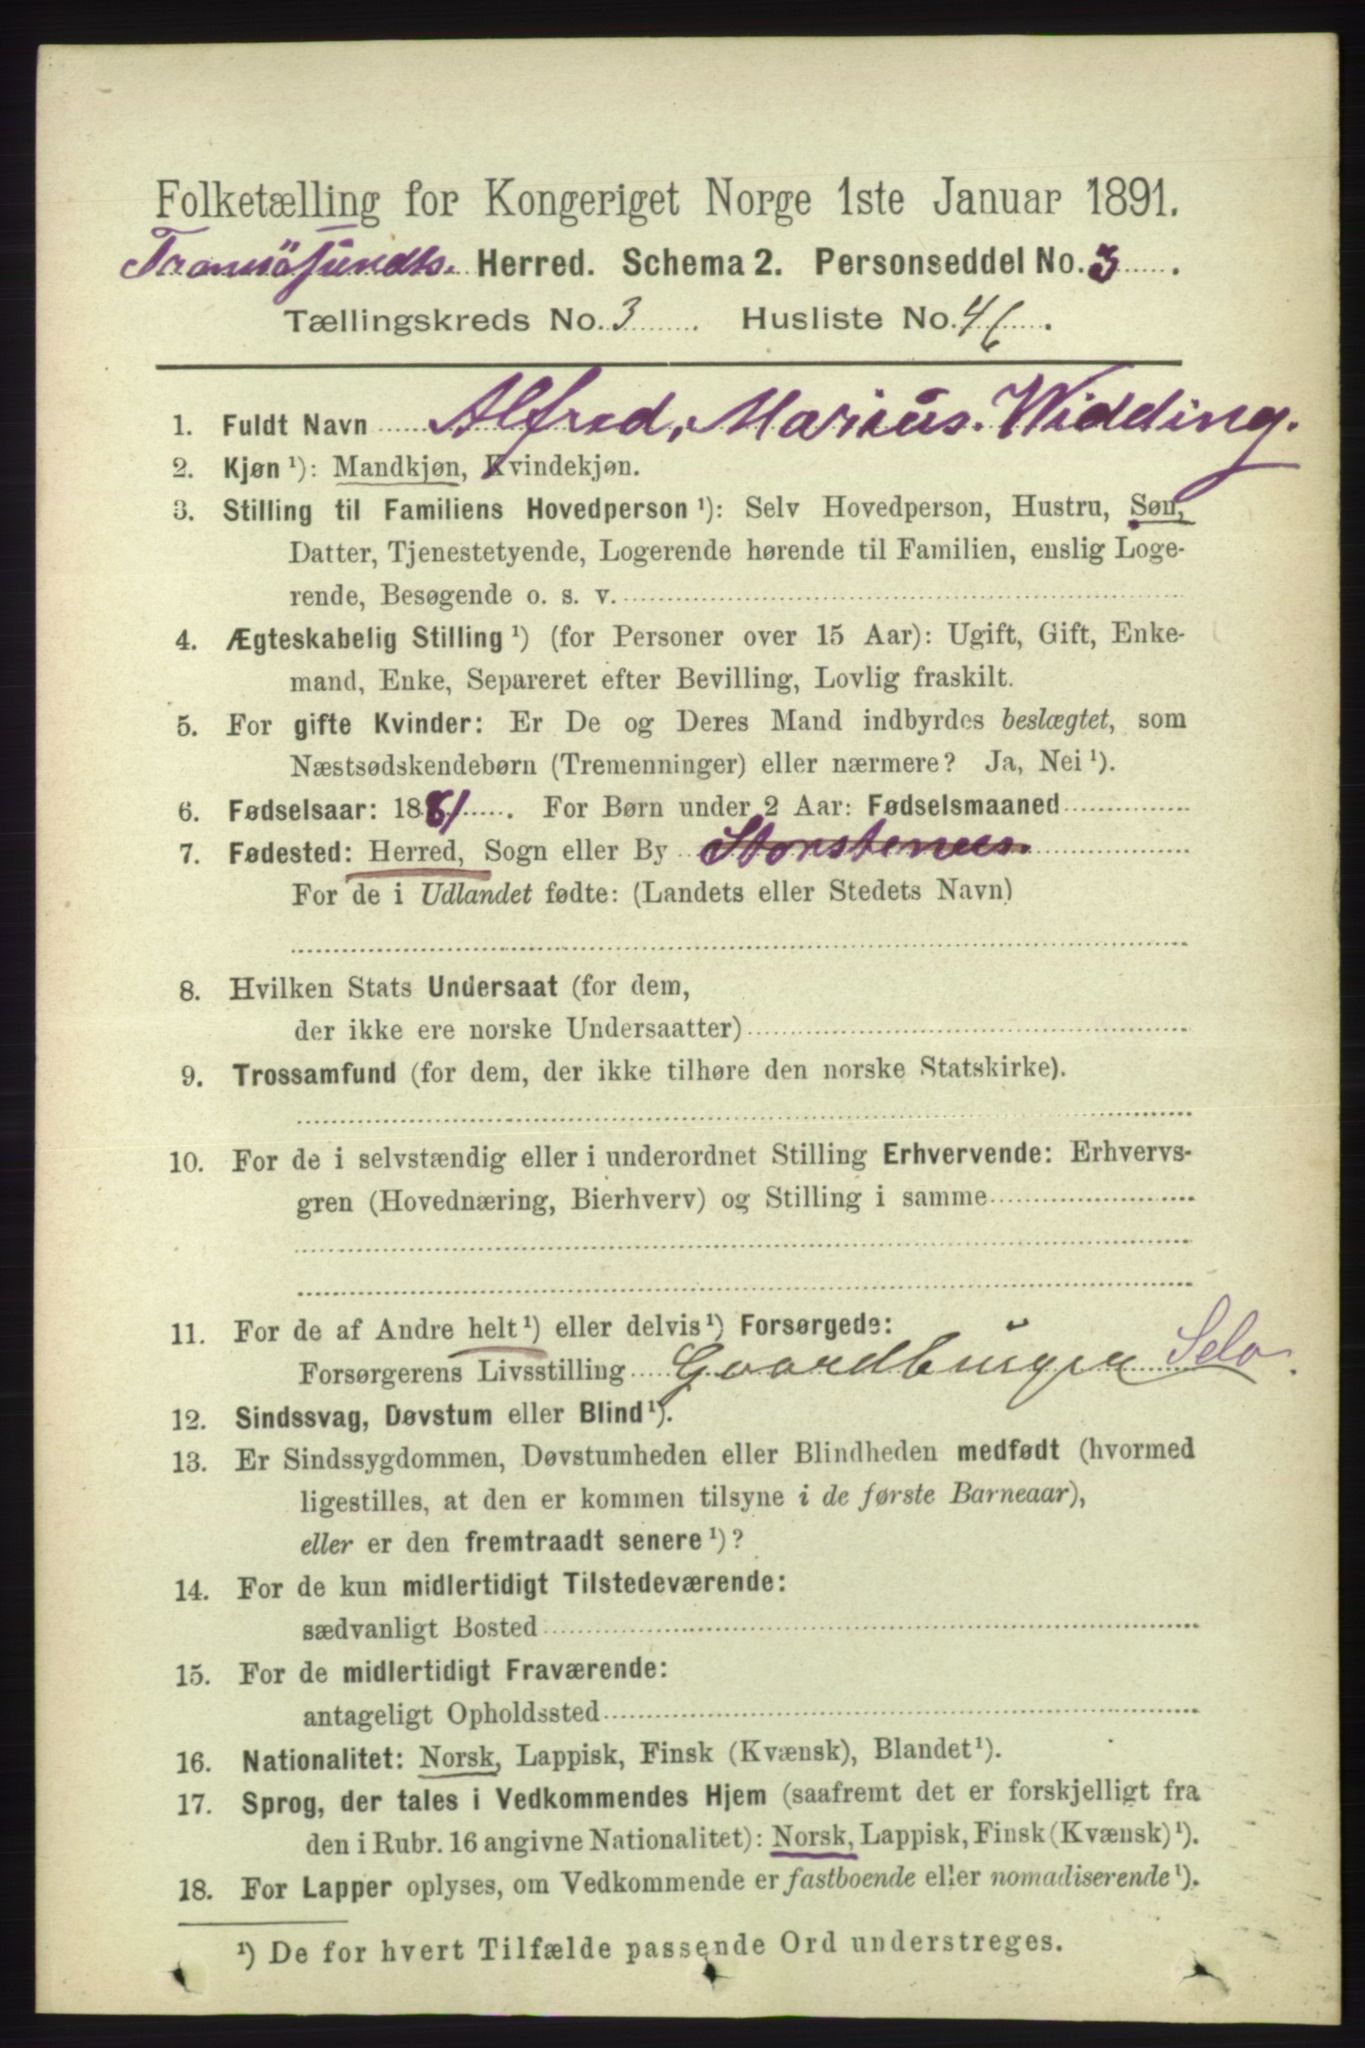 Folketælling for Kongeriget Norge 1ste Januar 1891.
Tromsøsundets. Herred. Schema 2. Personseddel No. 3.
Tællingskreds No. 3. Husliste No. 46.
1. Fuldt Navn Alfred, Marius. Widding.
2. Kjøn ¹): Mandkjøn, Kvindekjøn.
3. Stilling til Familiens Hovedperson ¹): Selv Hovedperson, Hustru, Søn,
Datter, Tjenestetyende, Logerende hørende til Familien, enslig Loge-
rende, Besøgende o. s. v.
4. Ægteskabelig Stilling ¹) (for Personer over 15 Aar): Ugift, Gift, Enke-
mand, Enke, Separeret efter Bevilling, Lovlig fraskilt.
5. For gifte Kvinder: Er De og Deres Mand indbyrdes beslægtet, som
Næstsødskendebørn (Tremenninger) eller nærmere? Ja, Nei ¹).
6. Fødselsaar: 1881. For Børn under 2 Aar: Fødselsmaaned
7. Fødested: Herred, Sogn eller By Storstenes.
For de i Udlandet fødte: (Landets eller Stedets Navn)
8. Hvilken Stats Undersaat (for dem,
der ikke ere norske Undersaatter)
9. Trossamfund (for dem, der ikke tilhøre den norske Statskirke).
10. For de i selvstændig eller i underordnet Stilling Erhvervende: Erhvervs-
gren (Hovednæring, Bierhverv) og Stilling i samme
11. For de af Andre helt ¹) eller delvis ¹) Forsørgede:
Forsørgerens Livsstilling Gaardbruger Selv.
12. Sindssvag, Døvstum eller Blind ¹).
13. Er Sindssygdommen, Døvstumheden eller Blindheden medfødt (hvormed
ligestilles, at den er kommen tilsyne i de første Barneaar),
eller er den fremtraadt senere ¹)?
14. For de kun midlertidigt Tilstedeværende:
sædvanligt Bosted
15. For de midlertidigt Fraværende:
antageligt Opholdssted
16. Nationalitet: Norsk, Lappisk, Finsk (Kvænsk), Blandet ¹).
17. Sprog, der tales i Vedkommendes Hjem (saafremt det er forskjelligt fra
den i Rubr. 16 angivne Nationalitet): Norsk, Lappisk, Finsk (Kvænsk) ¹).
18. For Lapper oplyses, om Vedkommende er fastboende eller nomadiserende ¹).
¹) De for hvert Tilfælde passende Ord understreges.